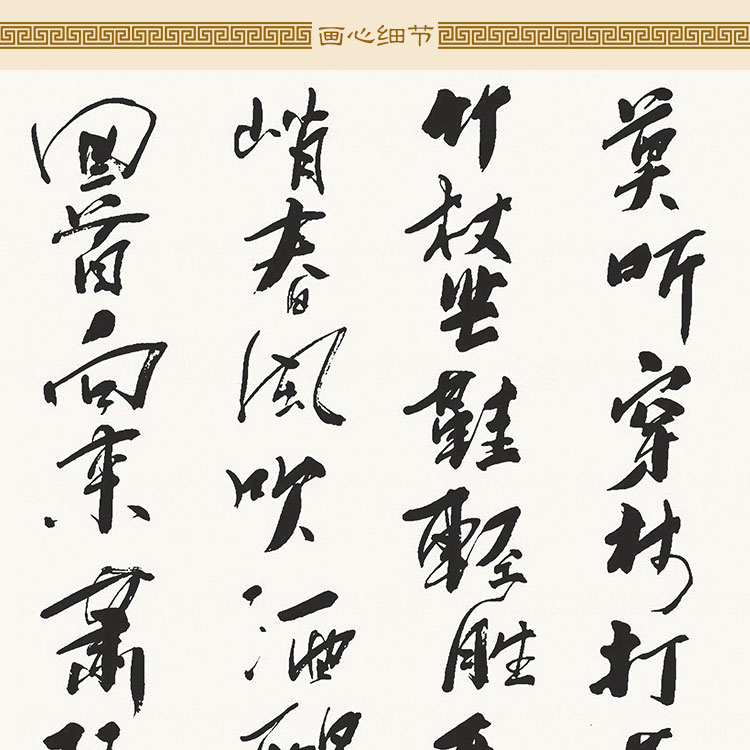 画心细节
莫听穿林打
竹杖芒鞋輕胜
峭春風吹酒
回首向来蕭